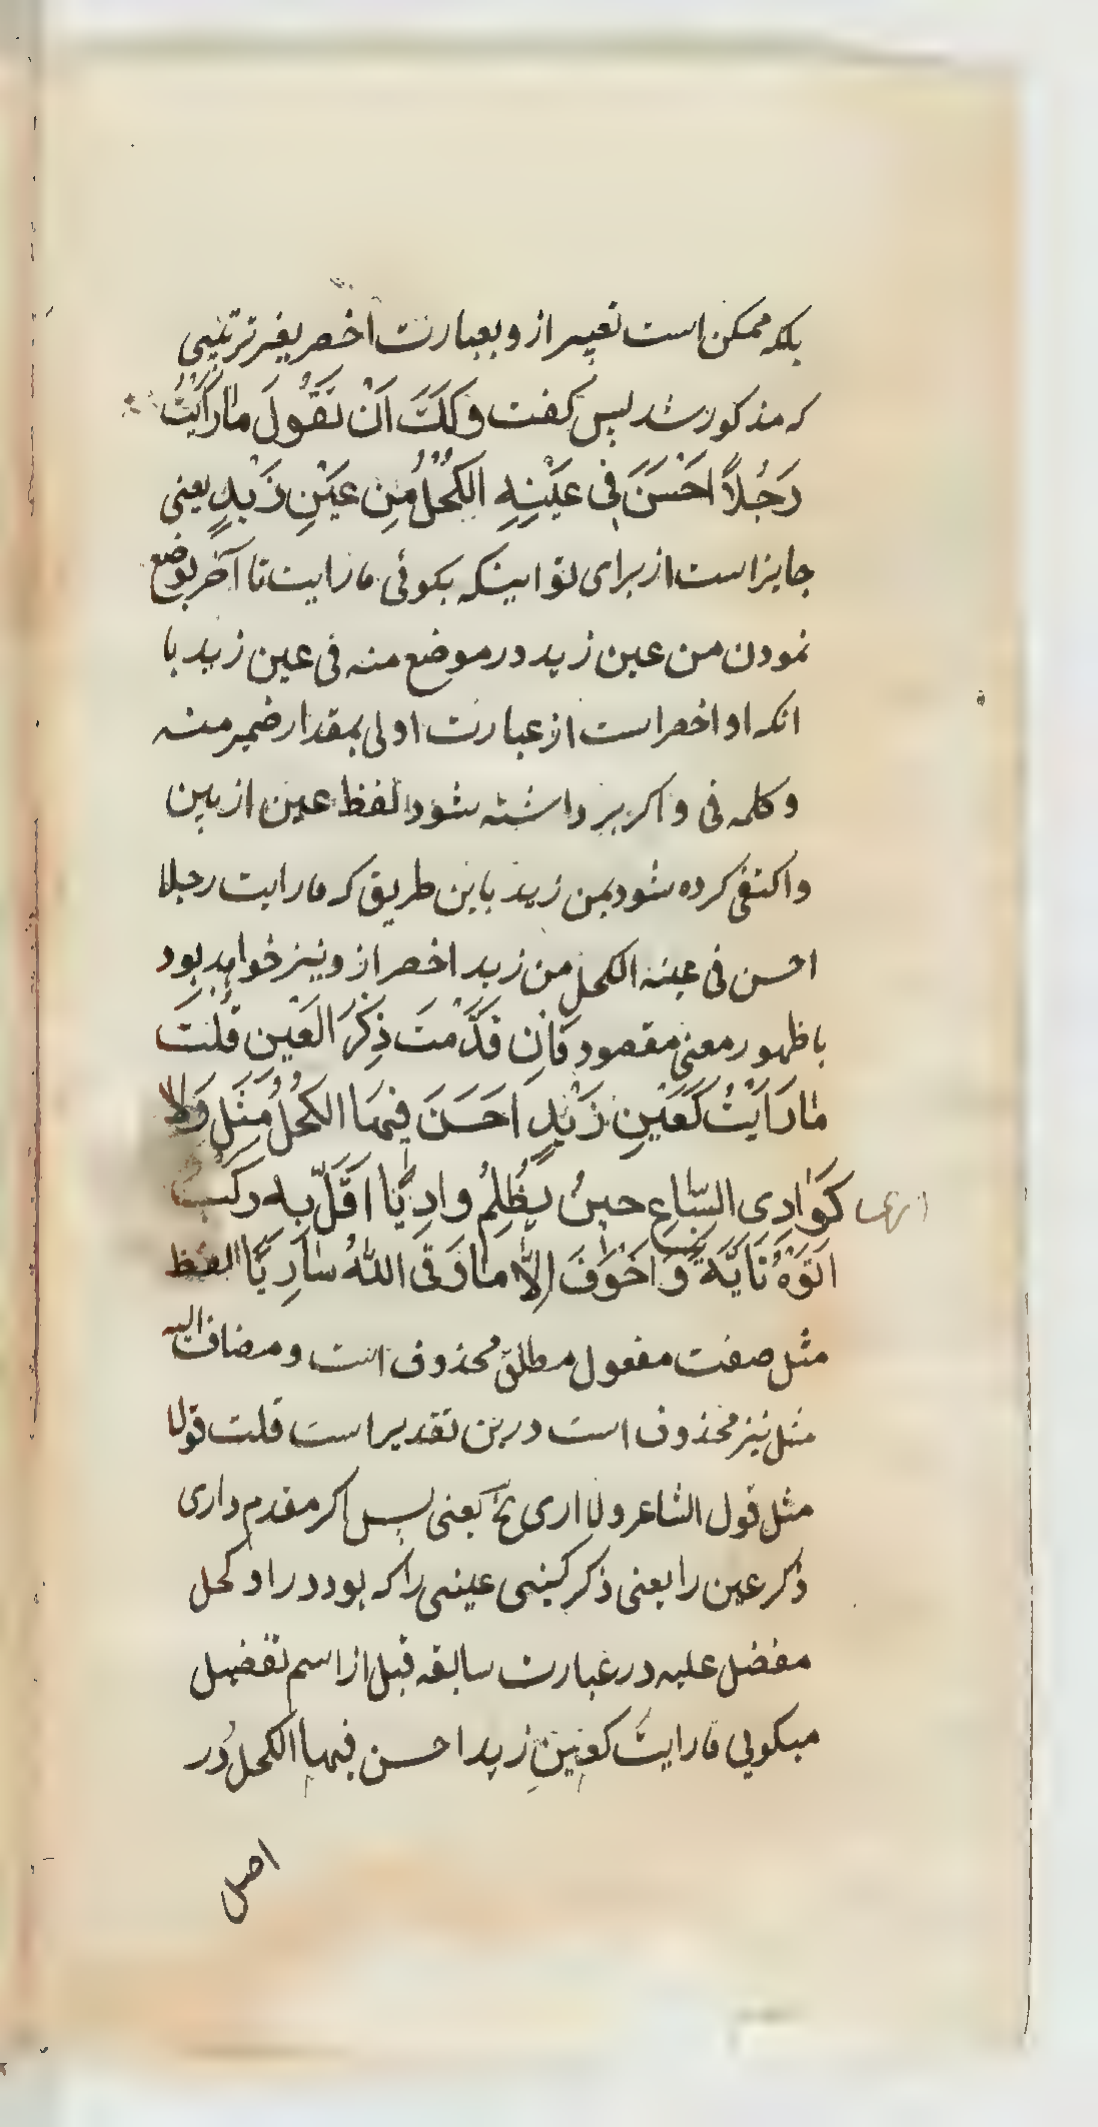 بلکه ممکن است تعبیر از و بعبارت اخصر بغیر ترتیبی
که مذکور شد پس کفت وَلَکَ اَنْ تَقُولَ مَارَاَیْتُ
رَجُلاً اَحْسَنَ فِی عَیْنِهِ الکُحْلُ مِن عَیْنِ زَیْدٍ یعنی
جایز است از برای تو اینکه بکوئی ما رایت تا آخر بوضع
نمودن من عین زید در موضع منه فی عین زید با
انکه او اخصر است از عبارت اولی بمقدار ضمیر منه
و کلمه فی و اکر برداشته شود لفظ عین از بین
و اکتفی کرده شود بمن زید باین طریق که ما رایت رجلا
احسن فی عینه الکحل من زید اخصر از و نیز خواهد بود
با ظهور معنی مقصود فَاِن قَدَّمتَ ذِکْرَ العَیْنِ قُلْتَ
مَارَاَیْتُ کَعَیْنِ زَیْدٍ اَحَسَنَ فِیهَا الکُحْلُ مِثْلَ وَلا
اری کَوَادِی السِّبَاعِ حِینَ یُظْلِمُ وادِیًا اَقَلَّ بِه رَکْبٌ
اَتَوْهُ تَایَّةً وَاَخْوَفَ اِلّا مَا وَقَی اللهُ سَارِیًا لفظ
مثل صفت مفعول مطلق محذوف است و مضاف الیه
مثل نیز محذوف است درین تقدیر است قلت قولا
مثل قول الشاعر ولا اری الخ یعنی پس اکر مقدم داری
ذکر عین را یعنی ذکر کنی عینی را که بود در او کحل
مفضل علیه در عبارت سابقه قبل از اسم تفضیل
میکویی ما رایتُ کعینِ زید احسن فیها الکحل در
اصل